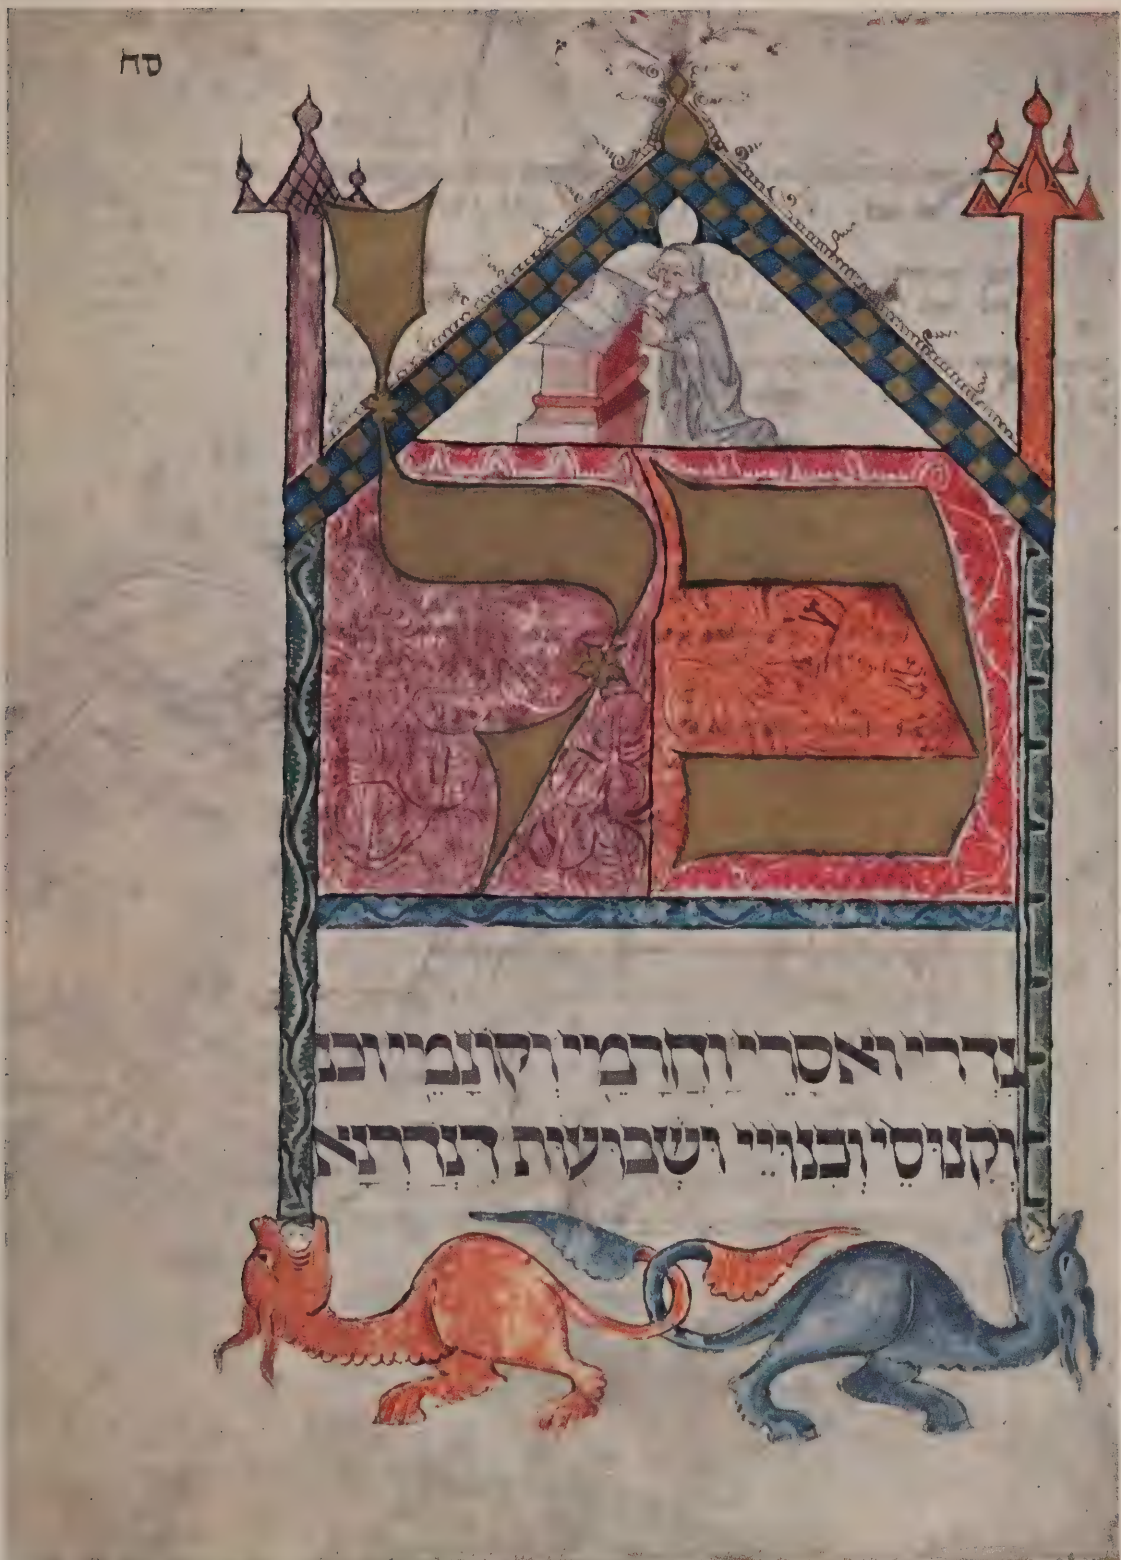 סח
כל
נדרי ואסרי וחרמי וקונמי וכנ
וקנוסי וכנויי ושבועות דנדרנא